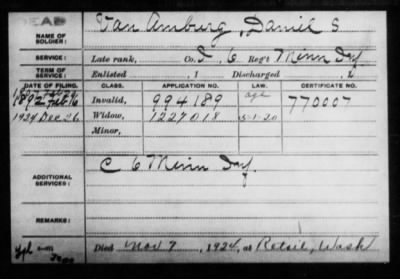 DEAD
NAME OF SOLDIER: Van Amburg, Daniel S
SERVICE: Late rank, Co. I, 6 Reg't Minn Inf
TERM OF SERVICE: Enlisted , 1 Discharged , 1
DATE OF FILING. CLASS. APPLICATION NO. LAW. CERTIFICATE NO.
1892 Feb 16 Invalid, 994189 770007
1924 Dec 26 Widow, 1227018 5-1-20
Minor,
ADDITIONAL SERVICES: C 6 Minn Inf.
REMARKS:
Died Nov 7, 1924, at Retsil, Wash